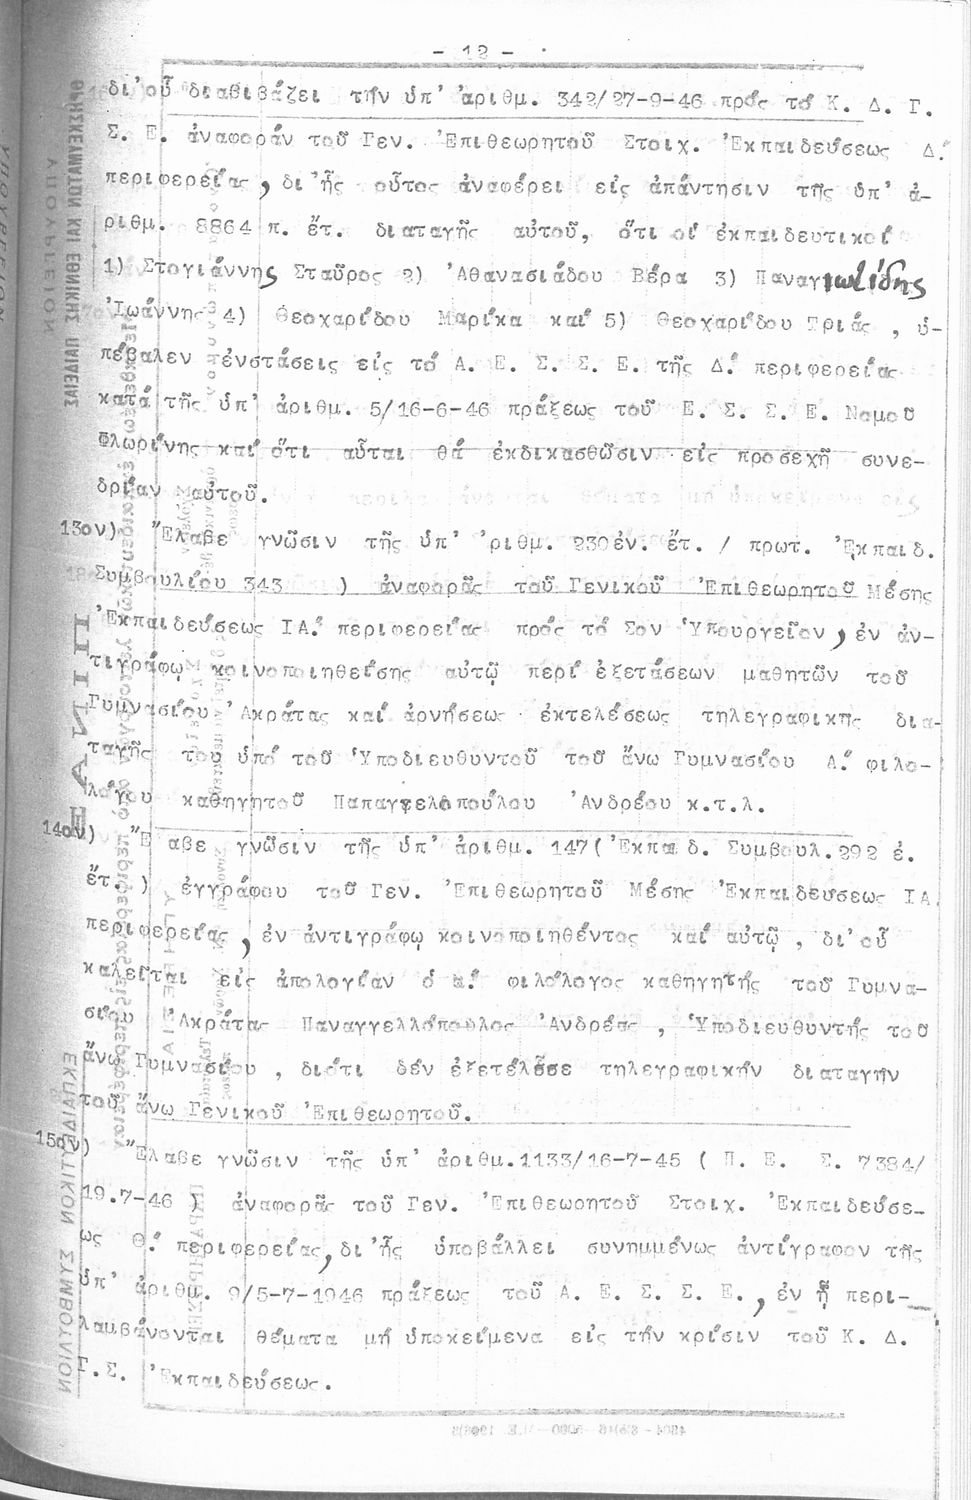 - 12 -
δι’οὗ διαβιβάζει τήν ὑπ’ ἀριθμ. 342/27-9-46 πρός τό Κ. Δ. Γ.
Σ. Ε. ἀναφοράν τοῦ Γεν. Ἐπιθεωρητοῦ Στοιχ. Ἐκπαιδεύσεως Δ.
περιφερείας, δι’ἧς οὗτος ἀναφέρει εἰς ἀπάντησιν τῆς ὑπ’ ἀ-
ριθμ. 8864 π. ἔτ. διαταγῆς αὐτοῦ, ὅτι οἱ ἐκπαιδευτικοί
1) Στογιάννης Σταῦρος 2) Ἀθανασιάδου Βέρα 3) Παναγιωτίδης
Ἰωάννης 4) Θεοχαρίδου Μαρίκα καί 5) Θεοχαρίδου Τριάς , ὑ-
πέβαλεν ἐνστάσεις εἰς τό Α. Ε. Σ. Σ. Ε. τῆς Δ. περιφερείας
κατά τῆς ὑπ’ ἀριθμ. 5/16-6-46 πράξεως τοῦ Ε. Σ. Σ. Ε. Νομοῦ
Φλωρίνης καί ὅτι αὗται θά ἐκδικασθῶσιν εἰς προσεχῆ συνε-
δρίαν αὐτοῦ.
13ον) Ἔλαβε γνῶσιν τῆς ὑπ’ ’ριθμ. 230 ἐν. ἔτ. / πρωτ. Ἐκπαιδ.
Συμβουλίου 343 ) ἀναφορᾶς τοῦ Γενικοῦ Ἐπιθεωρητοῦ Μέσης
Ἐκπαιδεύσεως ΙΑ. περιφερείας πρός τό Σον Ὑπουργεῖον, ἐν ἀν-
τιγράφῳ κοινοποιηθείσης αὐτῷ περί ἐξετάσεων μαθητῶν τοῦ
Γυμνασίου Ἀκράτας καί ἀρνήσεως ἐκτελέσεως τηλεγραφικῆς δια-
ταγῆς του ὑπό τοῦ Ὑποδιευθυντοῦ τοῦ ἄνω Γυμνασίου Α. φιλο-
λόγου καθηγητοῦ Παπαγγελοπούλου Ἀνδρέου κ.τ.λ.
14ον) Ἔ αβε γνῶσιν τῆς ὑπ’ ἀριθμ. 147( Ἐκπαιδ. Συμβουλ.292 ἐ.
ἔτ. ) ἐγγράφου τοῦ Γεν. Ἐπιθεωρητοῦ Μέσης Ἐκπαιδεύσεως ΙΑ.
περιφερείας, ἐν ἀντιγράφῳ κοινοποιηθέντος καί αὐτῷ , δι’οὗ
καλεῖται εἰς ἀπολογίαν ὁ α. φιλόλογος καθηγητής τοῦ Γυμνα-
σίου Ἀκράτας Παναγγελλόπουλος Ἀνδρέας , Ὑποδιευθυντής τοῦ
ἄνω Γυμνασίου , διότι δέν ἐξετέλεσε τηλεγραφικήν διαταγήν
τοῦ ἄνω Γενικοῦ Ἐπιθεωρητοῦ.
15ον) Ἔλαβε γνῶσιν τῆς ὑπ’ ἀριθμ.1133/16-7-45 ( Π. Ε. Σ. 7384/
19.7-46 ) ἀναφορᾶς τοῦ Γεν. Ἐπιθεωρητοῦ Στοιχ. Ἐκπαιδεύσε-
ως Θ. περιφερείας, δι’ἧς ὑποβάλλει συνημμένως ἀντίγραφον τῆς
ὑπ’ ἀριθμ. 9/5-7-1946 πράξεως τοῦ Α. Ε. Σ. Σ. Ε., ἐν ᾗ περι-
λαμβάνονται θέματα μή ὑποκείμενα εἰς τήν κρίσιν τοῦ Κ. Δ.
Γ.Σ. Ἐκπαιδεύσεως.